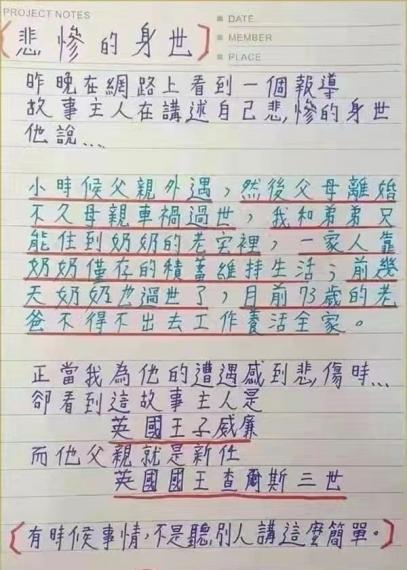 PROJECT NOTES
DATE
MEMBER
PLACE
【悲慘的身世】
昨晚在網路上看到一個報導
故事主人在講述自己悲慘的身世
他說...
小時候父親外遇，然後父母離婚
不久母親車禍過世，我和弟弟只
能住到奶奶的老宮裡，一家人靠
奶奶僅存的積蓄維持生活；前幾
天奶奶也過世了，目前73歲的老
爸不得不出去工作養活全家。
正當我為他的遭遇感到悲傷時...
卻看到這故事主人是
英國王子威廉
而他父親就是新任
英國國王查爾斯三世
【有時候事情，不是聽別人講這麼簡單。】